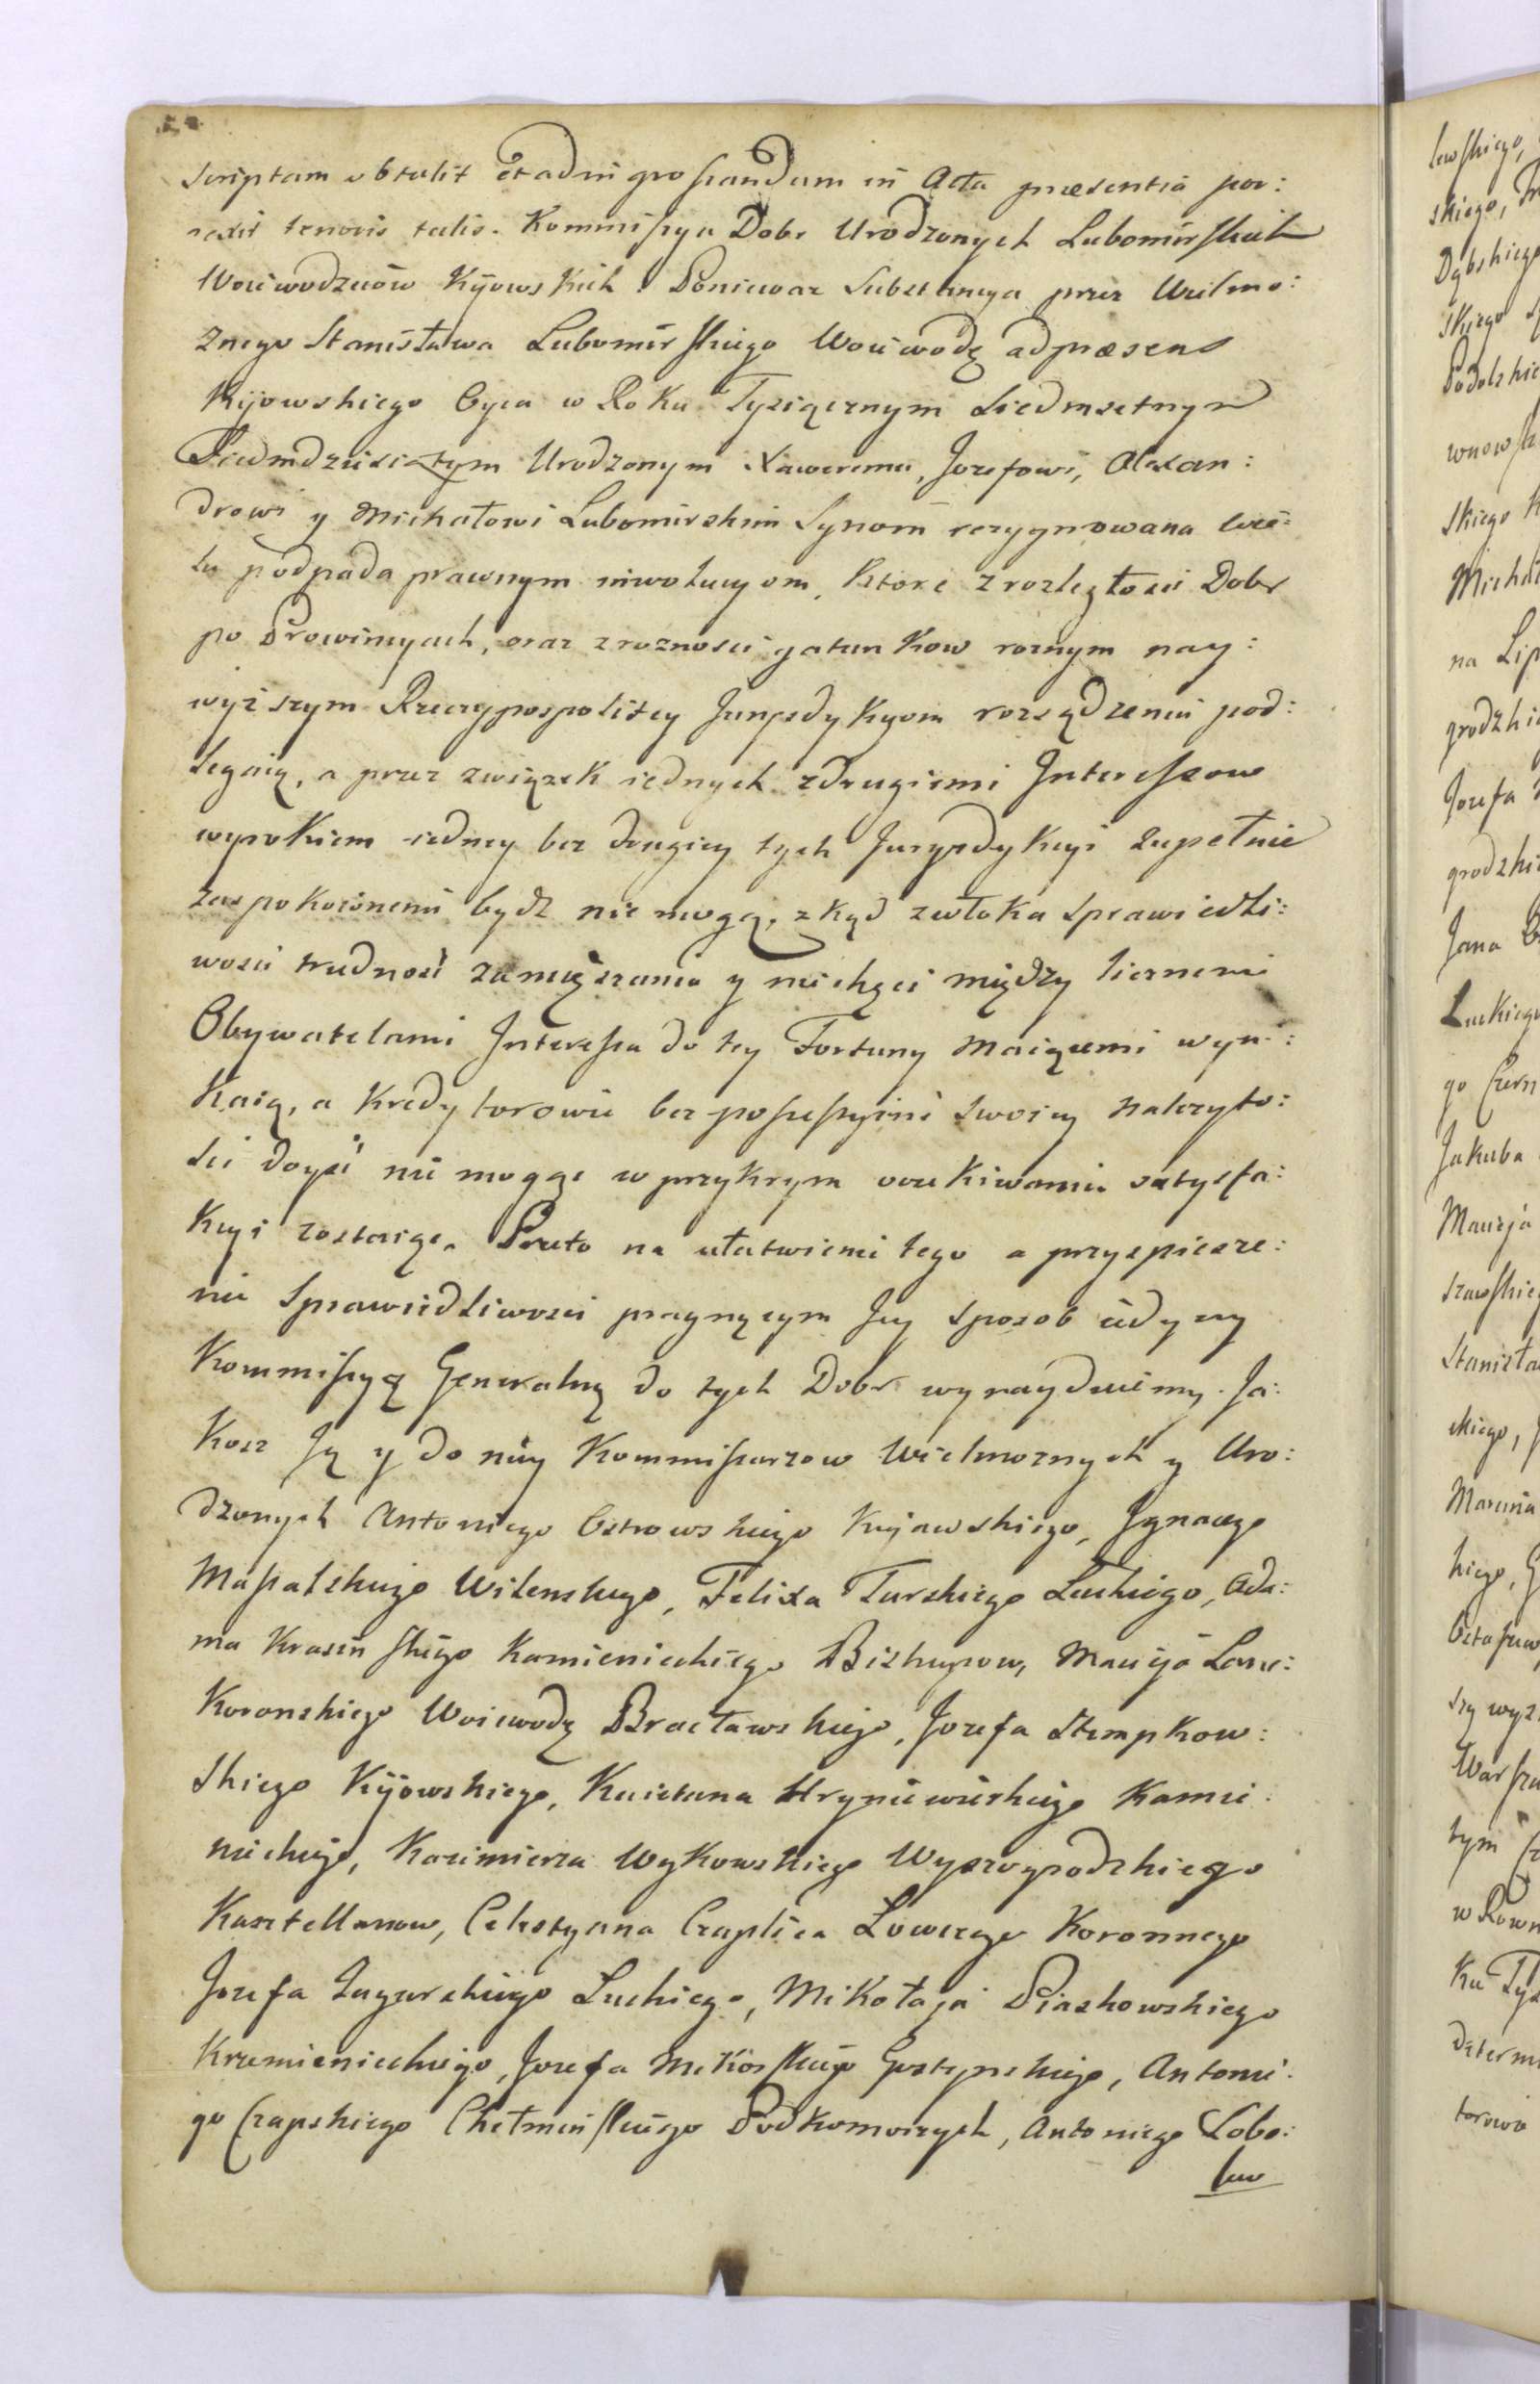 scriptam obtulit et ad ingrossandum in Acta præsentia por:
rexit tenoris talis. Kommissya Dobr Urodzonych Lubomirskich
Woiewodzicow Kijowskich. Poniewaz Substancya przez Wielmo:
znego Stanisława Lubomirskiego Woiewodę ad præsens
Kijowskiego Oyca w Roku Tysiącznym Siedmsetnym
Siedmdziesiątym Urodzonym Xaweremu, Jozefowi, Alexan:
drowi y Michałowi Lubomirskim Synom rezygnowana wie:
lu podpada prawnym inwolucyom, ktore z rozległosci Dobr
po Prowincyach, oraz z roznosci gatunkow roznym nay:
wyższym Rzeczypospolitey Juryzdykcyom rozsądzeniu pod:
legaią, a przez związek iednych z drugiemi Interessow
wyrokiem iedney bez drugiey tych Juryzdykcyi zupełnie
zaspokoionemi bydz nie mogą, zkąd zwłoka sprawiedli:
wosci trudność zamięszania y niechęci między licznemi
Obywatelami Interessa do tey Fortuny maiącemi wyni:
kaią, a Kredytorowie bez possessyini swoiey należyto:
sci doyść nie mogąc w przykrym oczekiwaniu satysfa:
kcyi zostaią. Przeto na ułatwienie tego a przyspiesze:
nie Sprawiedliwosci pragnącym Jey sposob iedyny
Kommissyą Generalną do tych Dobr wynayduiemy. Ja:
kosz Ją y do niey Kommissarzow Wielmoznych y Uro:
dzonych Antoniego Ostrowskiego Kujawskiego, Jgnacego
Massalskiego Wilenskiego, Felixa Turskiego Luckiego, Ada:
ma Krasinskiego Kamienieckiego Biskupow, Macieja Lanc:
koronskiego Woiewodę Bracławskiego, Jozefa Stempkow:
skiego Kijowskiego, Kaietana Hryniewieckiego Kamie:
nieckiego, Kazimierza Wykowskiego Wyszogrodzkiego
Kasztellanow, Celestyna Czaplica Łowczego Koronnego
Jozefa Zagurskiego Luckiego, Mikołaja Piaskowskiego
Krzemienieckiego, Jozefa Mikorskiego Gostynskiego, Antonie:
go Czapskiego Chełminskiego Podkomorzych, Antoniego Łobo: